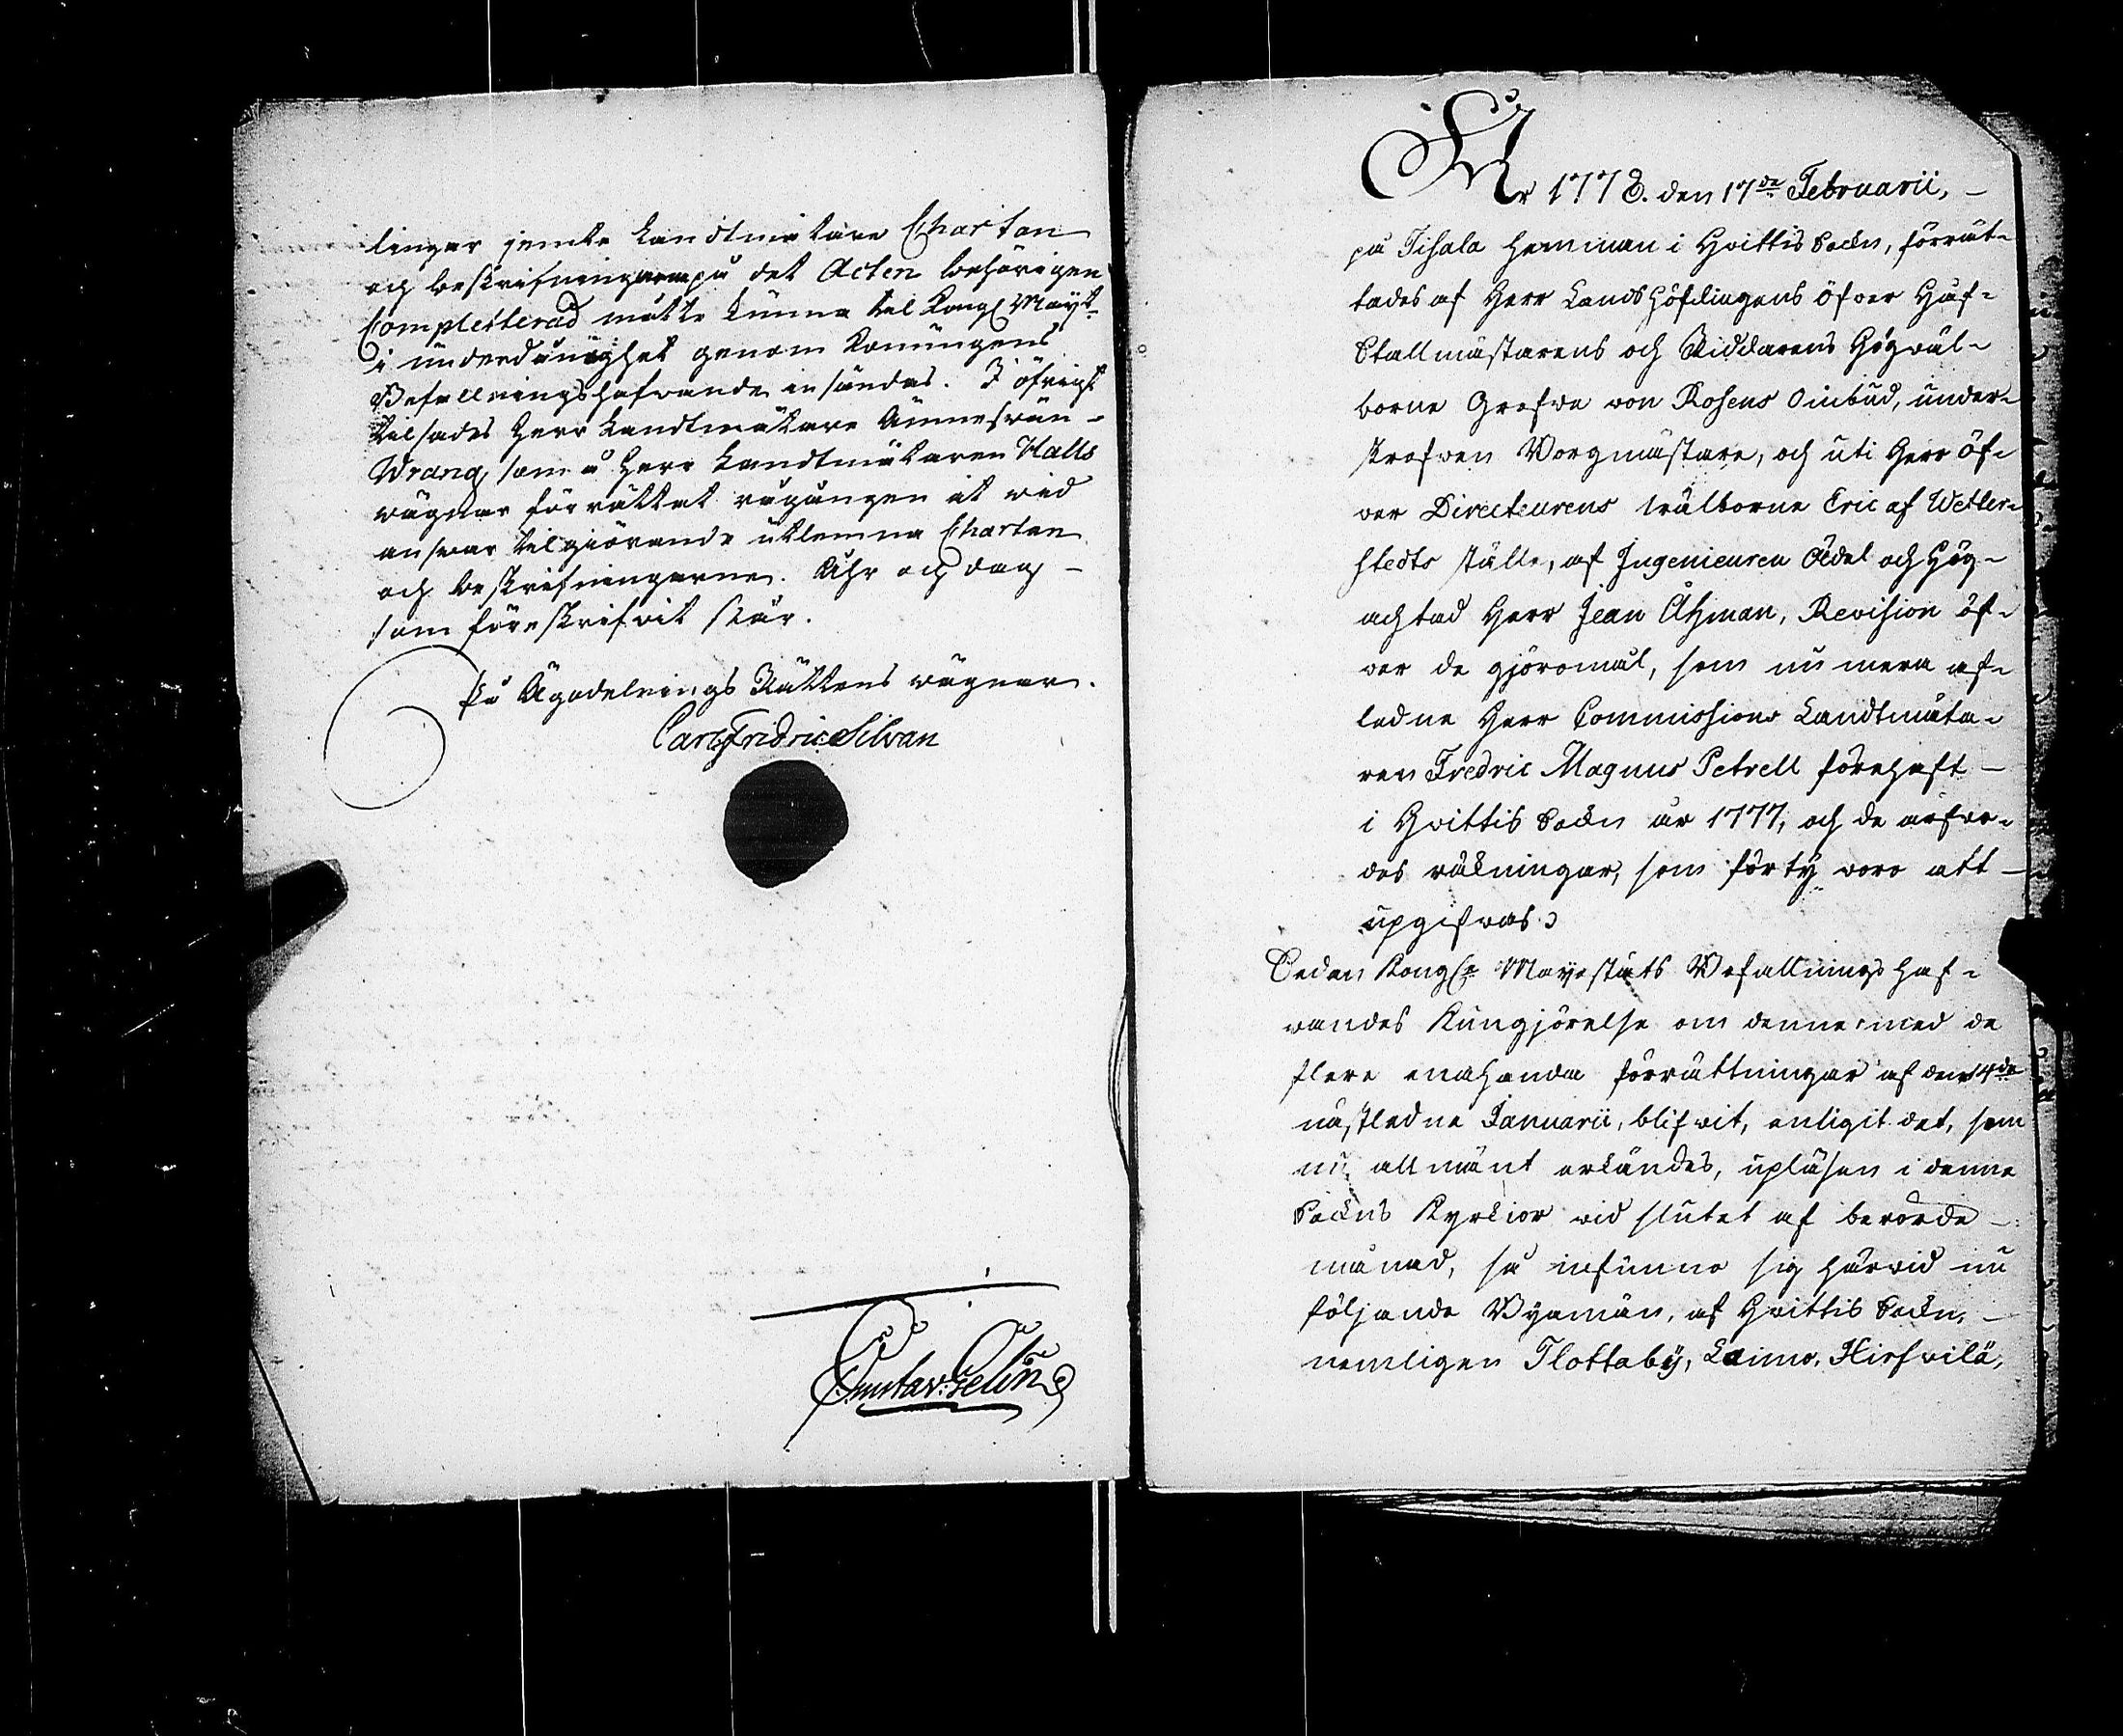 lingar jemte Landtmätare Chartan
och beskrifningarne på det Acten behörigen
Completterad måtte kunna til Kongl May:t
i underdånighet genom Konungens
Befallningshafwande insändas. I öfrigt
tilsades Herr Landtmätare Ämneswän-
Wrang, som å Herr Landtmätaren Halls
wägnar förrättat rågången at wid
answar tilgiörande utlemna Chartan
och beskrifningarne. Åhr och dag -
som föreskrifwit står.
På Ägodelnings Rättens wägnar.
Carl Fridric Silvan
Gustav: Gelin
År 1778. den 17de Februarii, -
på Isala hemman i Hvittis Sockn, förrät-
tades af Herr Landshöfdingens öfver Håf-
Stallmästarens och Riddarens Högväl-
borne Grefve von Rosens Ombud, under-
skrefven Borgmästare, och uti Herr Öf-
ver Directeurens välborne Eric af Wetter-
stedts ställe, af Ingenieuren Ädel och Hög-
achtad Herr Jean Åhman, Revision öf-
ver de gjöromål, som nu mera af-
ledne Herr Commissions Landtmäta-
ren Fredric Magnus Petrell förehaft -
i Hvittis Sockn år 1777, och de arfvo-
des räkningar, som för ty voro att -
upgifvas.
Sedan Kongl:e Mayestäts Befallningshaf-
vandes Kungjörelse om denne med de
flere enahanda förrättningar af den 14de
nästledne Januarii, blifvit, enligit det, som
nu allmänt erkändes, upläsen i denne
Sockns Kyrkior vid slutet af berörde -
månad, så infunno sig härvid nu
följande Byamän, af Hvittis Sockn, -
nemligen Flottaby, Laimo, Hirfvilä,